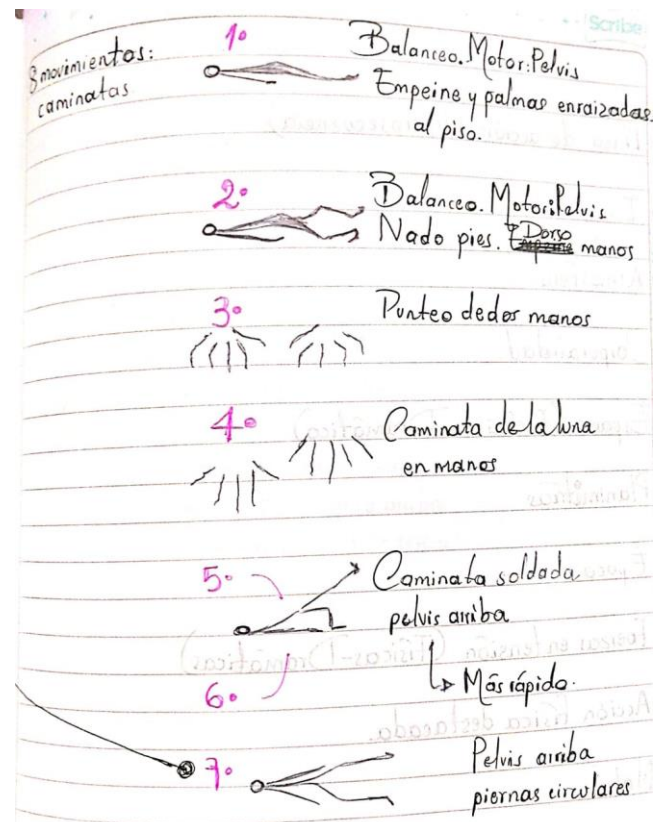 Scribe
8 movimientos:
caminatas
1º
Balanceo. Motor: Pelvis
Empeine y palmas enraizadas
al piso.
2º
Balanceo. Motor: Pelvis
Nado pies. Dorso manos
3º
Punteo dedos manos
4º
Caminata de la luna
en manos
5º
Caminata soldada
pelvis arriba
6º
Más rápido.
7º
Pelvis arriba
piernas circulares